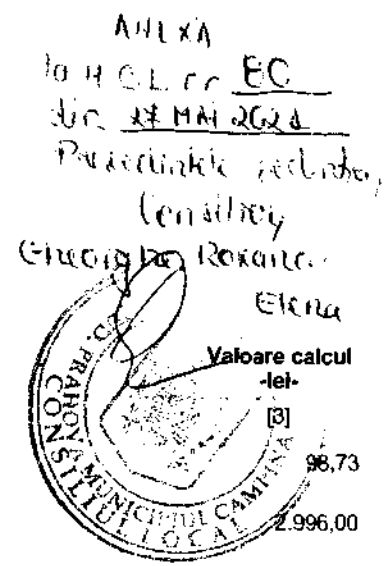 ANEXA
la H.C.L. nr. 80
din 27 MAI 2021
Președintele ședinței,
Consilier,
Gheorghe Roxana
Elena
Valoare calcul
-lei-
[3]
98,73
2.996,00
JUD. PRAHOVA MUNICIPIUL CAMPINA
CONSILIUL LOCAL